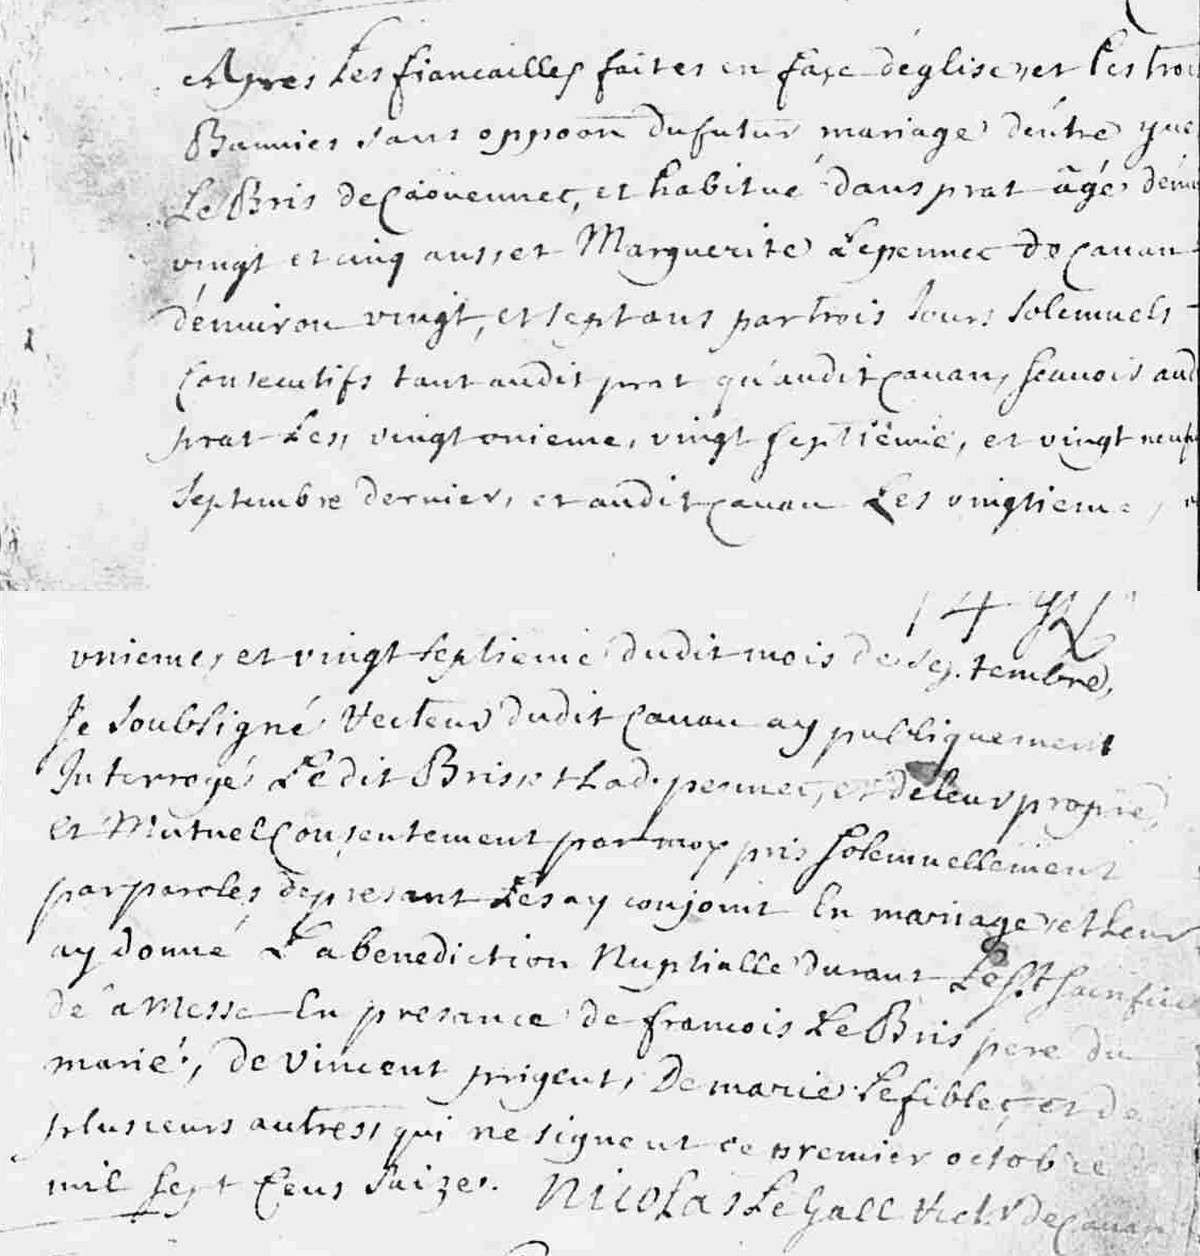 Apres Les fiancailles faites en face déglise, et Les troi
Bannies sans oppoon du futur mariage déntre yue
Le Bris de Caoüennec, et habitué dans prat âgé dénui
vingt et cinq ans, et Marguerite Lepennec de Cauan
dénuiron vingt, et sept ans par trois Jours solemnels
Consecutifs tant audit prat qu'audit Cauan, scauoir aud
prat Les, vingt onieme, vingt septiéme, et vingt neuf
septembre dernier, et audit Cauan Les vingtieme,
14
vnieme, et vingt septieme dudit mois de septembre,
Je soubsigné Recteur dudit Cauan ay publiquement
Interrogé Ledit Bris et Lad. pennec, et de leur propre,
et Mutuel Consentement par moy pris solemnellement
par paroles depresant Les ay conjoint En mariage et Leur
ay donné La benediction Nuptialle durant Le st sacrifice
de la Messe En presance de francois Le Bris pere du
marié, de Vincent prigent, De marie Lefiblec, et de
plusieurs autres, qui ne signent ce premier octobre
mil sept Cens saize. Nicolas Le Gall Rectr de Cauan